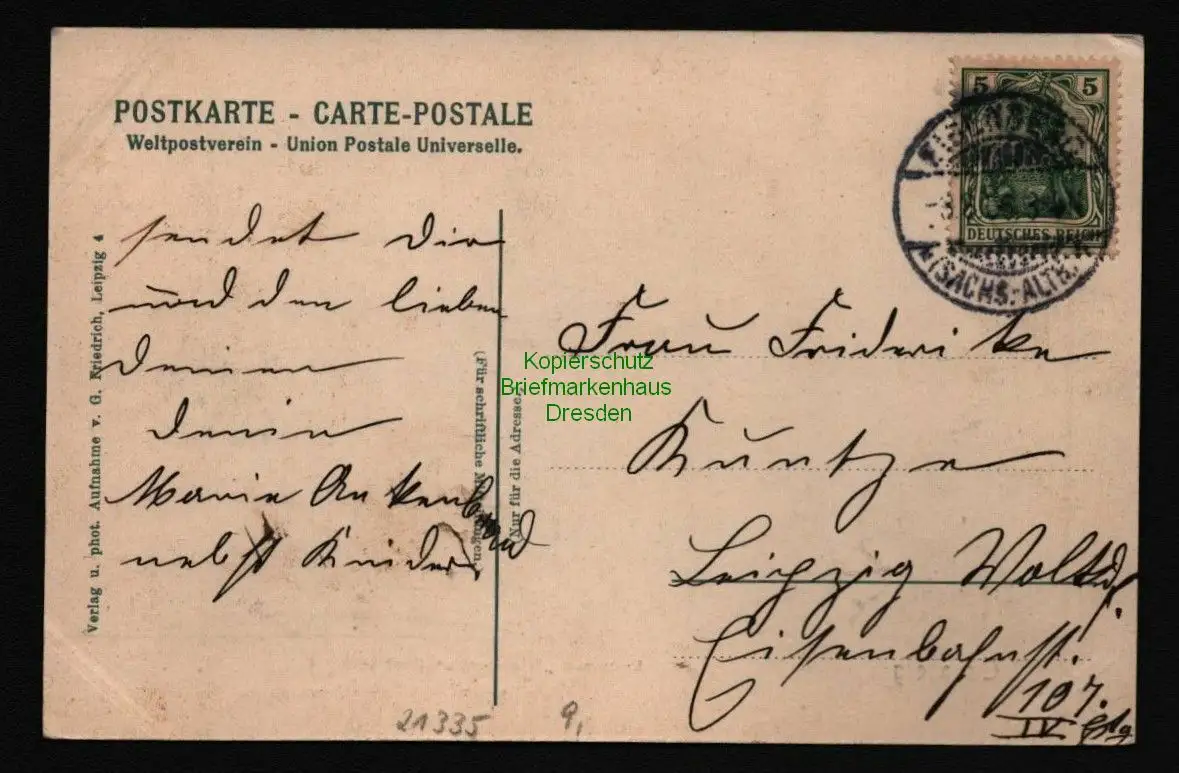 POSTKARTE - CARTE-POSTALE
Weltpostverein - Union Postale Universelle.
5 5
DEUTSCHES REICH
(SACHS.-ALTB.)
Verlag u. phot. Aufnahme v. G. Friedrich, Leipzig 4
sendet Dir
und den lieben
Deinen
Deine
Marie
nebst Kinder
(Für schriftliche
(Nur für die Adresse)
Kopierschutz
Briefmarkenhaus
Dresden
Frau Friderike
Kuntze
Leipzig
Eisenbahnst.
107.
IV. Etg
21335
9,